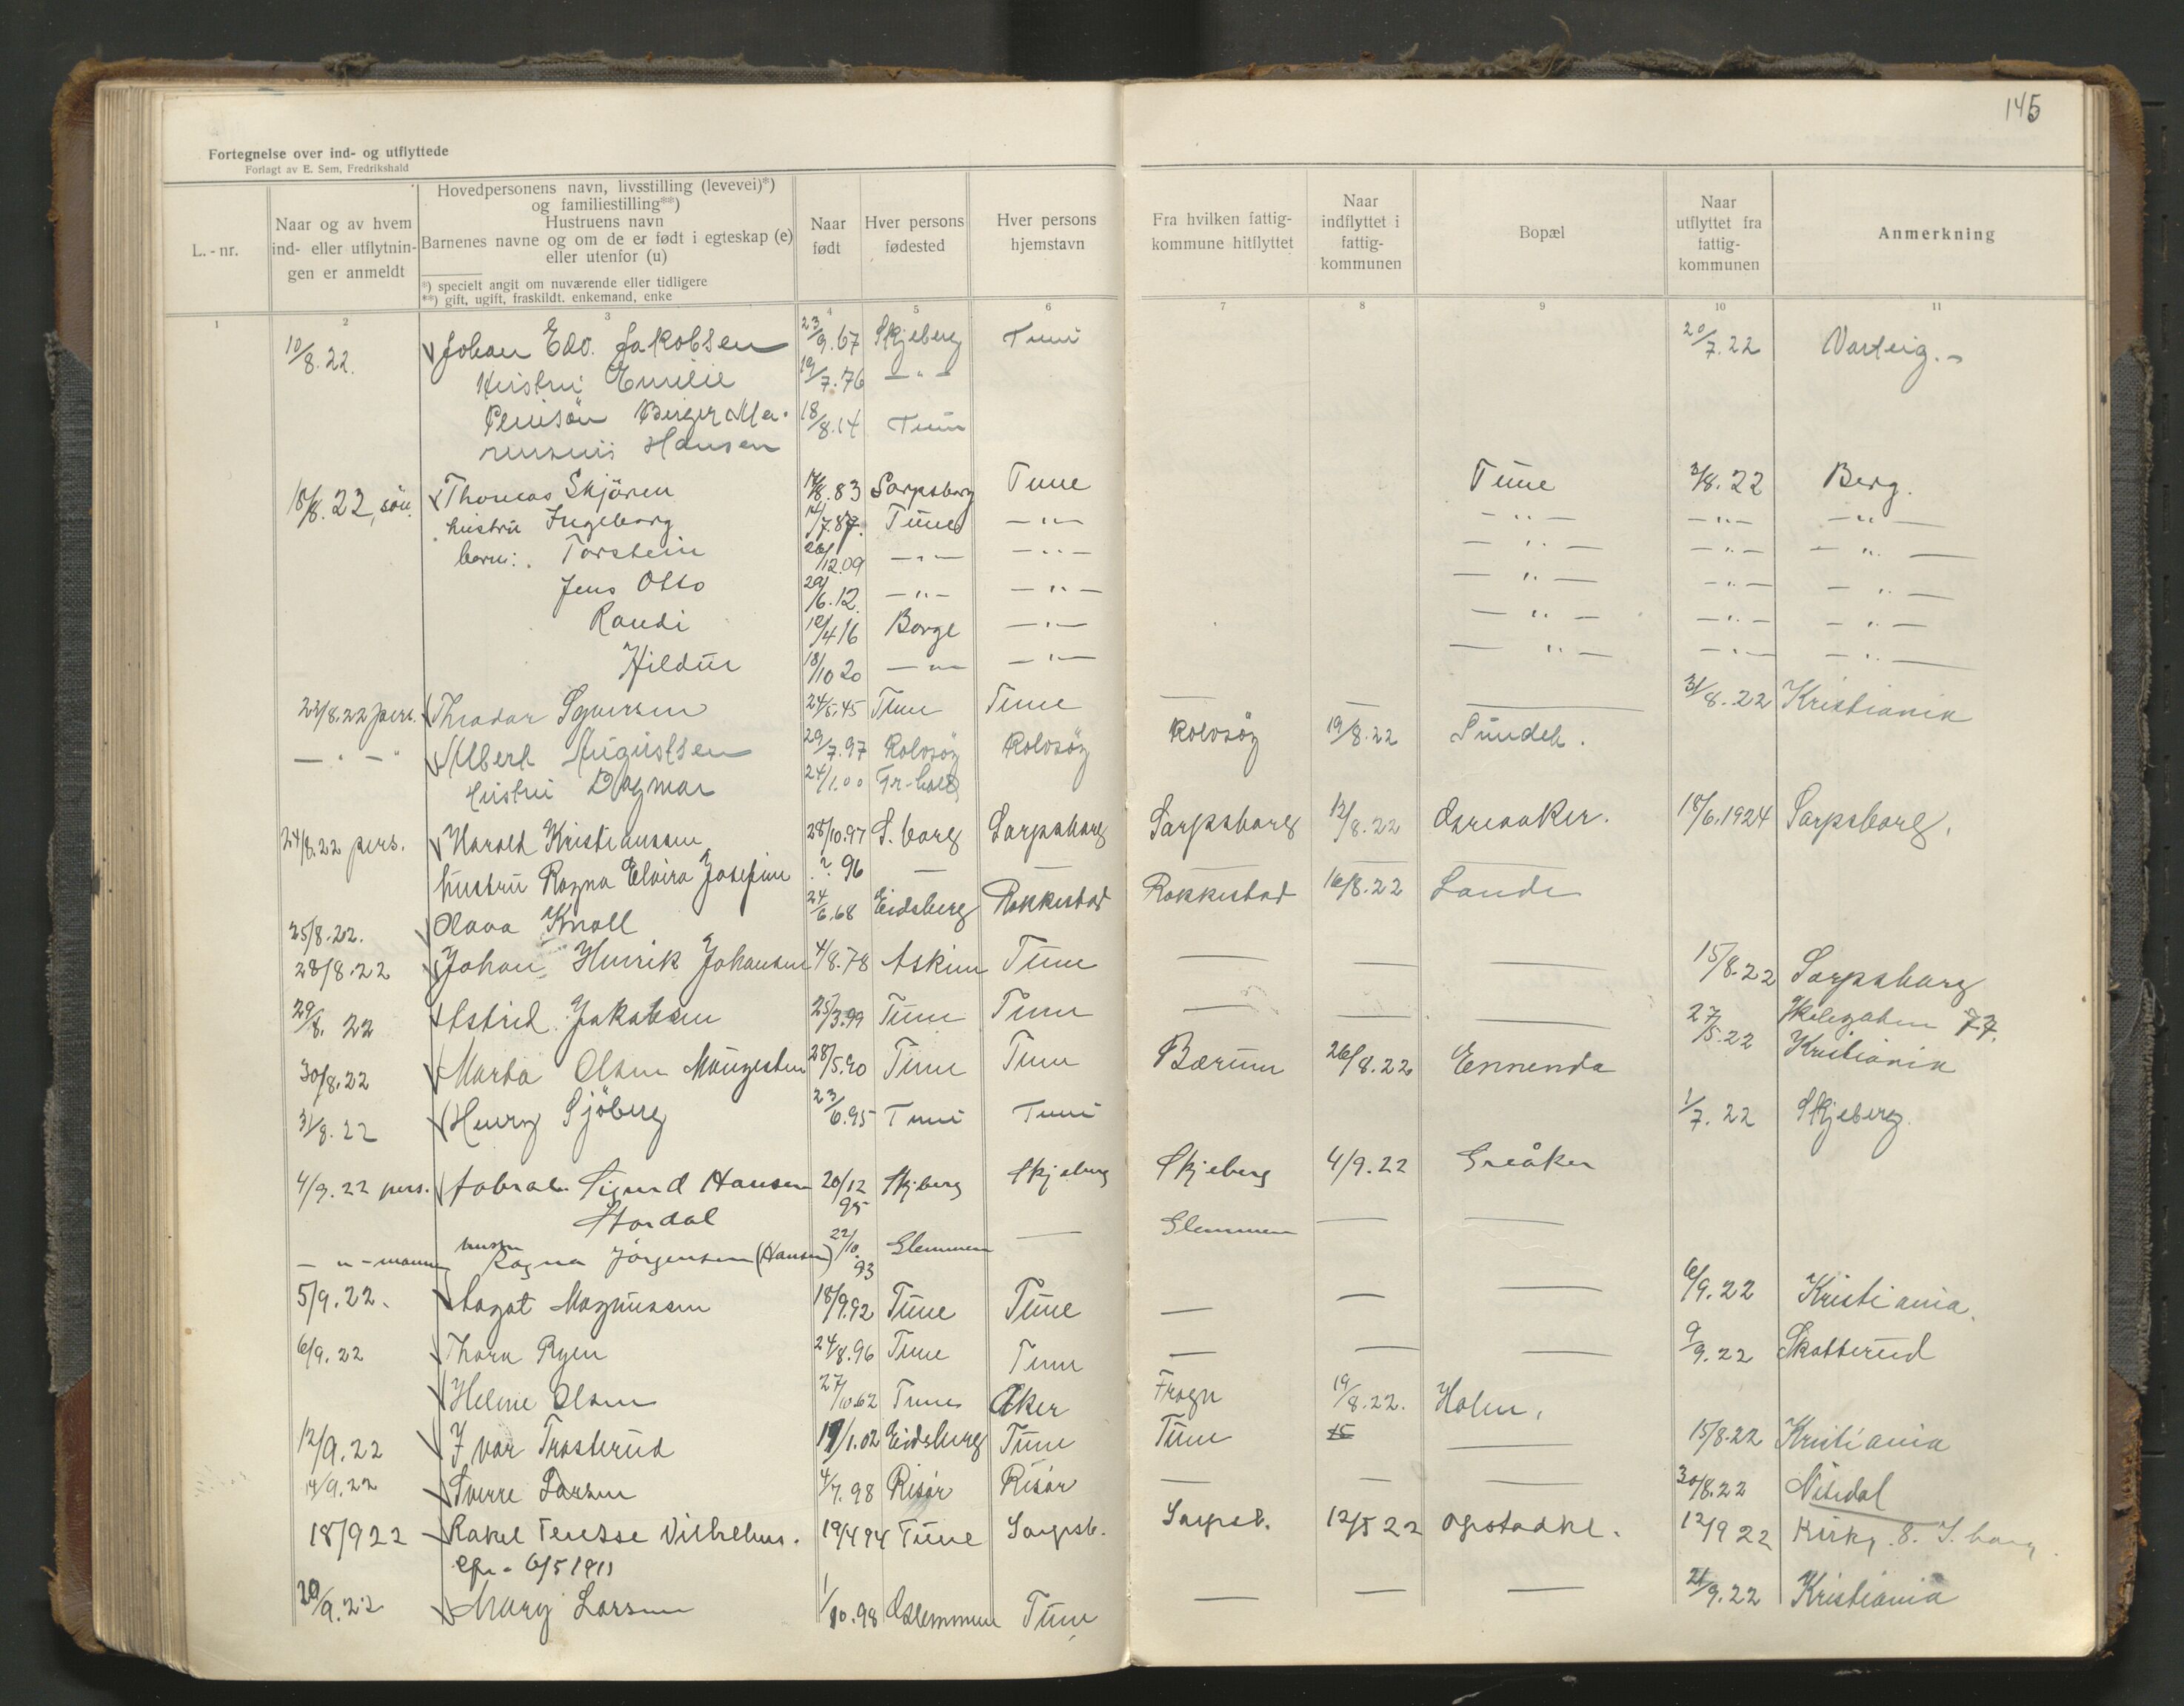 145
Fortegnelse over ind- og utflyttede
Forlagt av E. Sem, Fredrikshald
L.-nr.
Naar og av hvem ind- eller utflytnin- gen er anmeldt
Hovedpersonens navn, livsstilling (levevei)*)
og familiestilling**)
Hustruens navn
Barnenes navne og om de er født i egteskap (e)
eller utenfor (u)
*) specielt angit om nuværende eller tidligere
**) gift, ugift, fraskildt, enkemand, enke
Naar født
Hver persons fødested
Hver persons hjemstavn
Fra hvilken fattig- kommune hitflyttet
Naar indflyttet i fattig- kommunen
Bopæl
Naar utflyttet fra fattig- kommunen
Anmerkning
1 2 3 4 5 6 7 8 9 10 11
10/8.22. Johan Edv. Jakobsen 23/9.67 Skjeberg Tune 20/7.22 Varteig.
Hustru Emilie 19/7.76 — " —
Pleiesön Birger Ma- 18/8.14 Tune
Hansen
18/8.22, søn. Thomas Skjören 17/8.83 Sarpsborg Tune Tune 3/8.22 Berg.
hustru Ingeborg 14/7.87. Tune — " — — " — — " — — " —
barn: Torstein 26/12.09 — " — — " — — " — — " — — " —
Jens Otto 29/6.12. — " — — " — — " — — " — — " —
Randi 12/4 16 Borge — " — — " — — " — — " —
Hildur 18/10 20 — " — — " — — " — — " — — " —
22/8.22 pers. Theodor Syversen 24/5.45 Tune Tune — — — 31/8.22 Kristiania
— " — " Albert Augustsen 29/7.97 Rolvsöy Rolvsöy Rolvsöy 19/8.22 Sundet.
Hustru Dagmar 24/1.00 Fr-hald
24/8.22 pers. Harald Kristianssen 28/10.97 S. borg Sarpsborg Sarpsborg 12/8.22 Greaaker. 18/6.1924 Sarpsborg.
hustru Ragna Elvira Josefine ? 96 — — — — —
25/8.22. Olava Knoll 24/6.68 Eidsberg Rakkestad Rakkestad 16/8.22 Lande
28/8.22 Johan Henrik Johansen 4/8.78 Askim Tune — — — 15/8.22 Sarpsborg
29/8.22 Astrid Jakobsen 25/3.99 Tune Tune — — — 27/5.22 77.
Kristiania
30/8.22 Marta Olsen 28/5.90 Tune Tune Bærum 26/8.22 Ennenda
31/8.22 Henry Sjöberg 23/6.95 Tune Tune 1/7.22 Skjeberg.
4/9.22 pers. Sigurd Hansen 20/12 95 Skjeberg Skjeberg Skjeberg 4/9.22 Greåker
Stordal
— " — mannen hustru Ragna Jørgensen (Hansen) 22/10. 93 Glemmen — Glemmen — —
5/9.22. Aagot Magnussen 18/9.92 Tune Tune — — — 6/9.22 Kristiania.
6/9.22 Thora Ryen 24/8.96 Tune Tune — — — 9/9.22 Skotterud
Helene Olsen 27/10.62 Tune Aker Frogn 19/8.22. Holm.
12/9.22 Ivar Trøsterud 19/1.02 Eidsberg Tune Tune 15 — 15/8.22 Kristiania
14/9.22 Sverre Larsen 4/7.98 Risør Risør — — — 30/8.22 Nitedal
18/9 22 Rakel Teresse Vilhelms. 19/4 94 Tune Sarpsb. Sarpsb. 12/5 22 Opstadkl. 12/9 22 Kirkg. 8. S. borg
6/5 1911
20/9.22 Mary Larsen 1/10.98 Glemmen Tune — — — 21/9.22 Kristiania